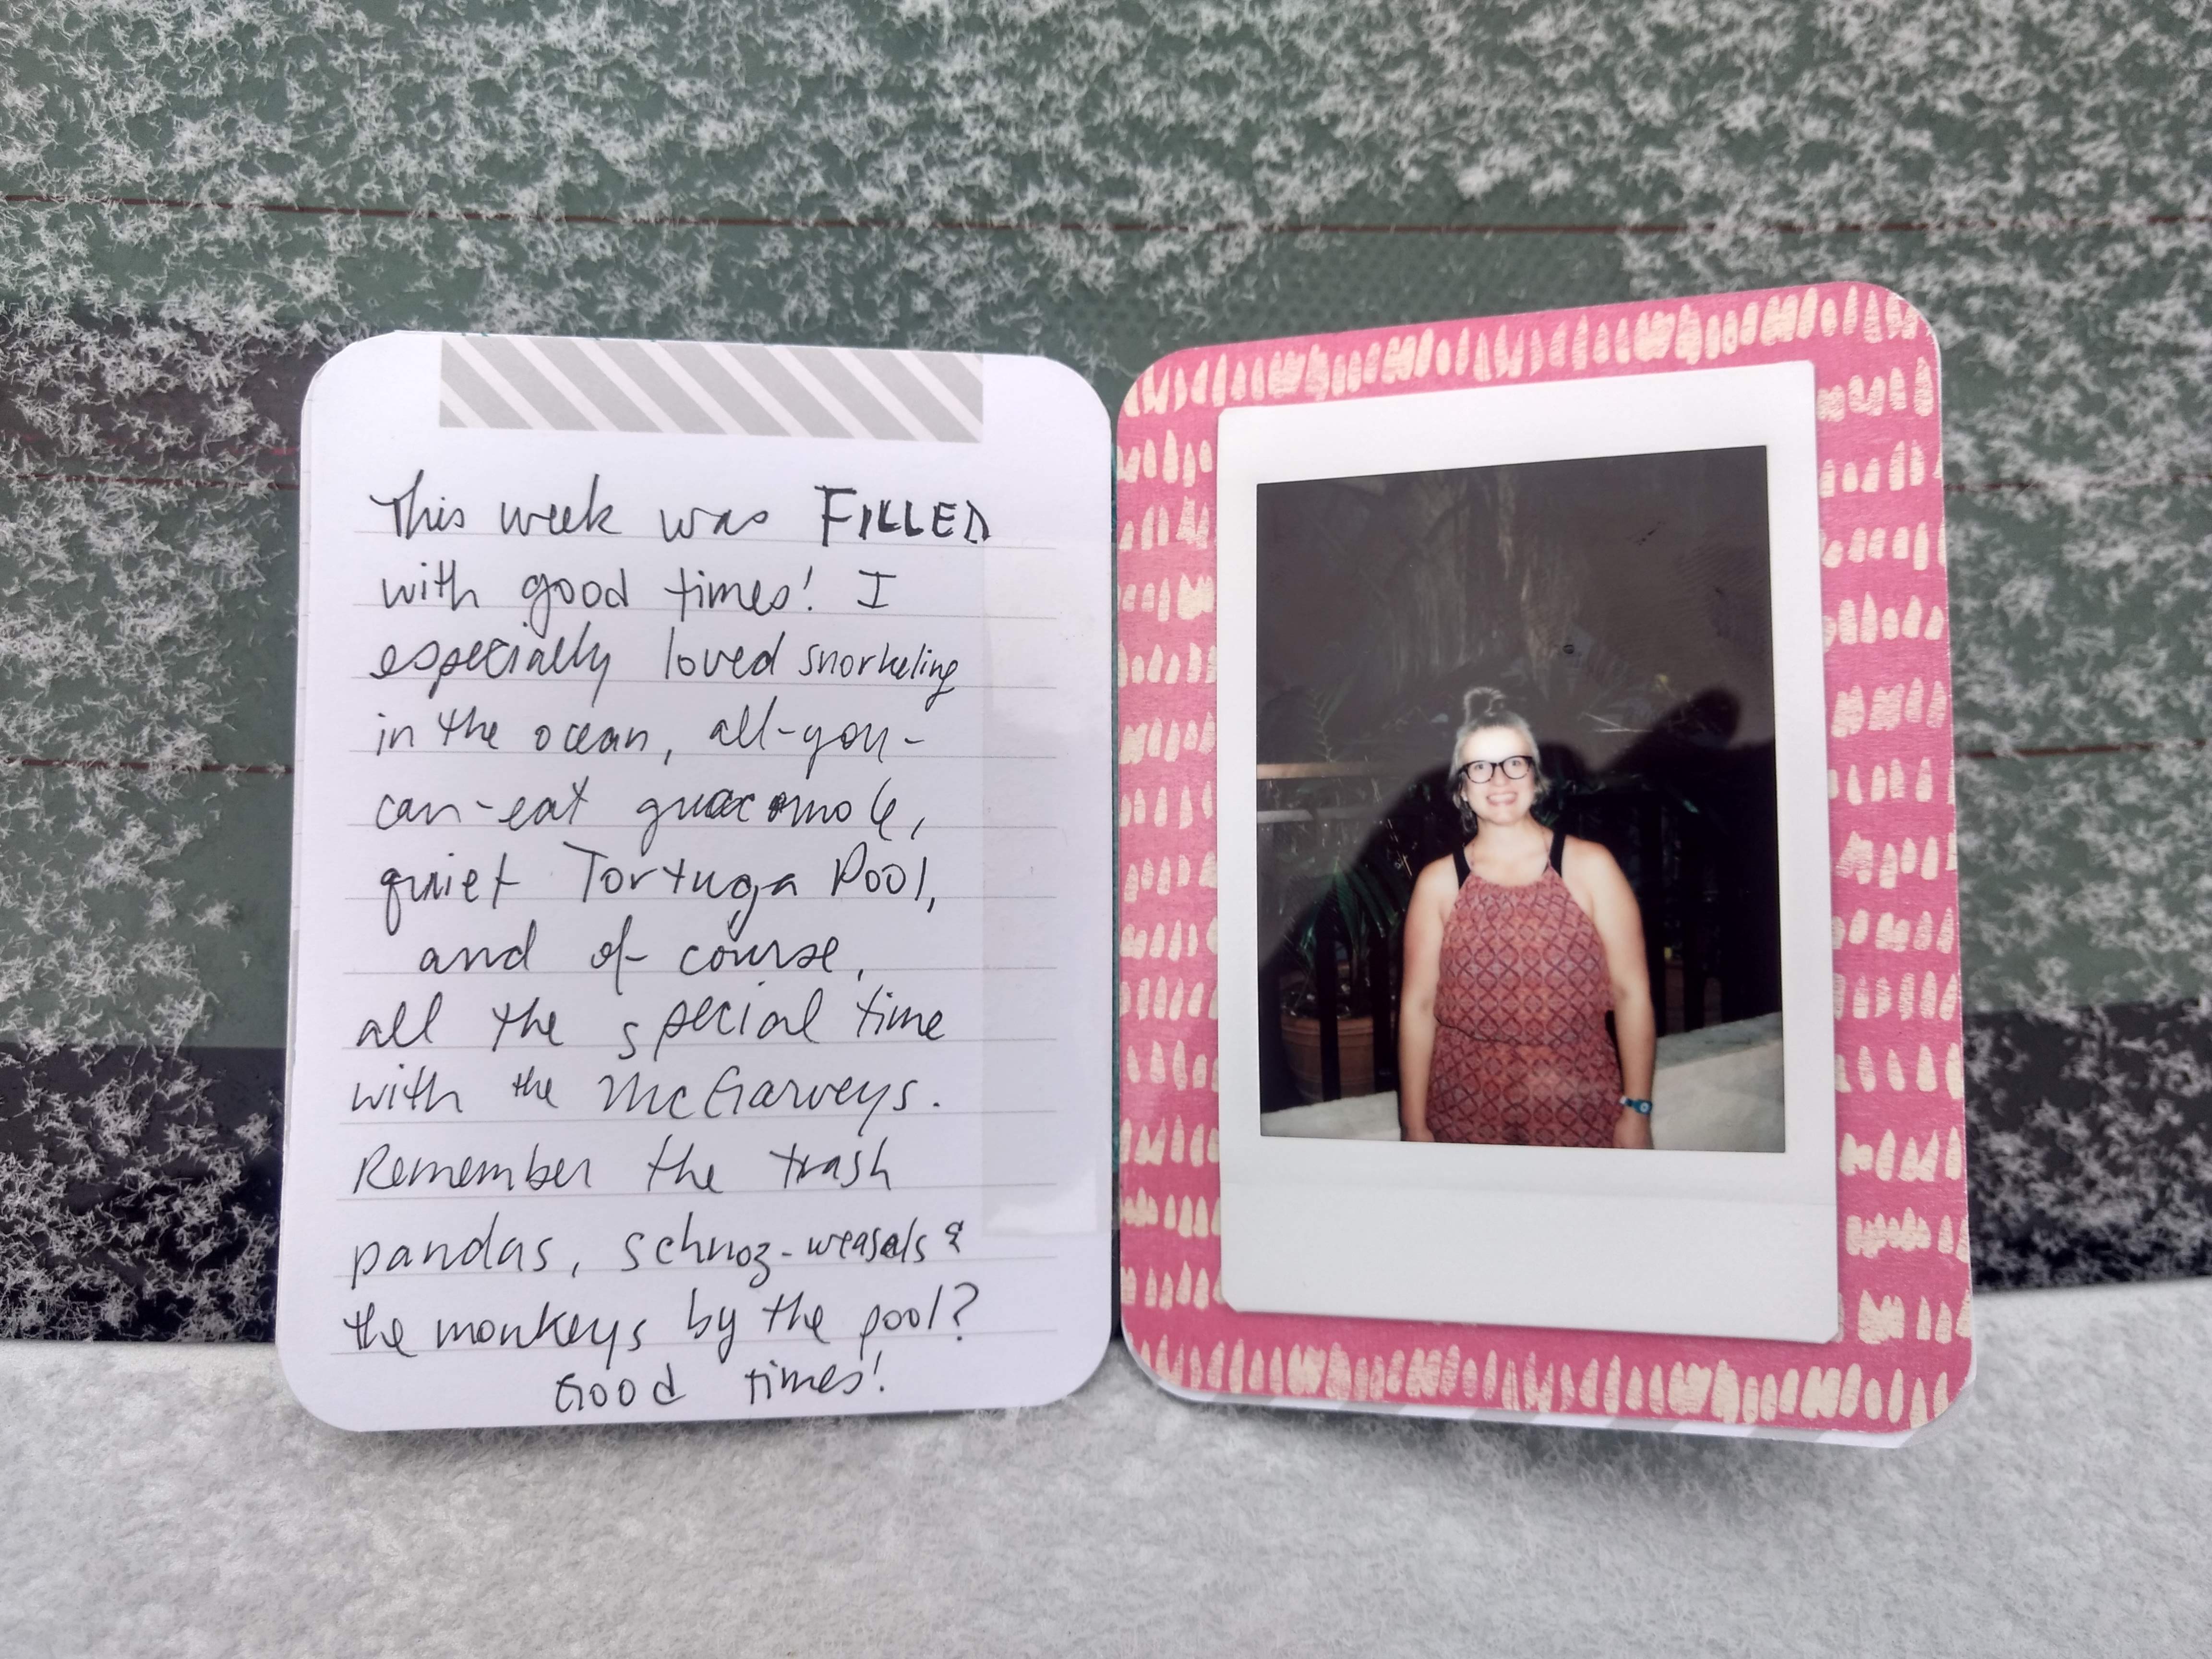 This week was FILLED
with good times! I
especially loved snorkeling
in the ocean, all-you-
can-eat guacamole,
quiet Tortuga Pool,
and of course,
all the special time
with the McGarveys.
Remember the trash
pandas, schnoz-weasels &
the monkeys by the pool?
Good times!